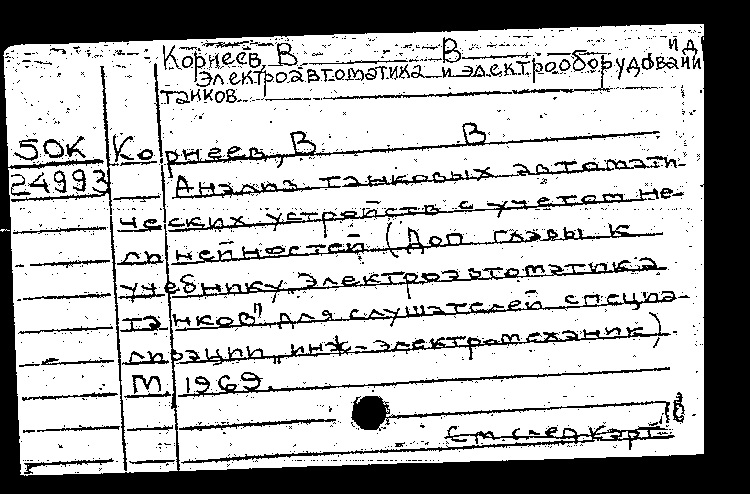 Корнеев, В В и др
Электроавтоматика и электрооборудовани
танков
50К Корнеев, В В
24993 Анализ танковых автомати-
ческих устройств с учетом не-
линейностей (Доп. главы к
учебнику Электроавтоматика
танков" для слушателей специа-
лизации „инж-электромеханик)
М., 1969.
См. след карт.